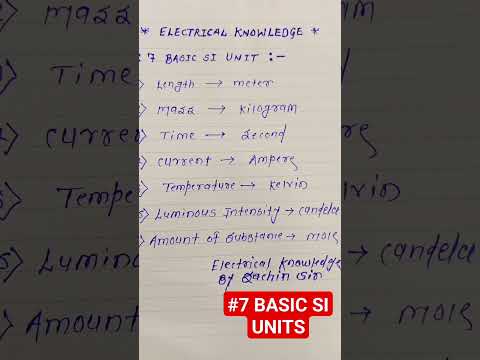 * ELECTRICAL KNOWLEDGE *
7 BASIC SI UNIT :-
Length → meter
Mass → Kilogram
Time → Second
Current → Ampere
Temperature → Kelvin
Luminous Intensity → Candela
Amount of Substance → Mole
Electrical Knowledge
By Sachin Sir
#7 BASIC SI
UNITS